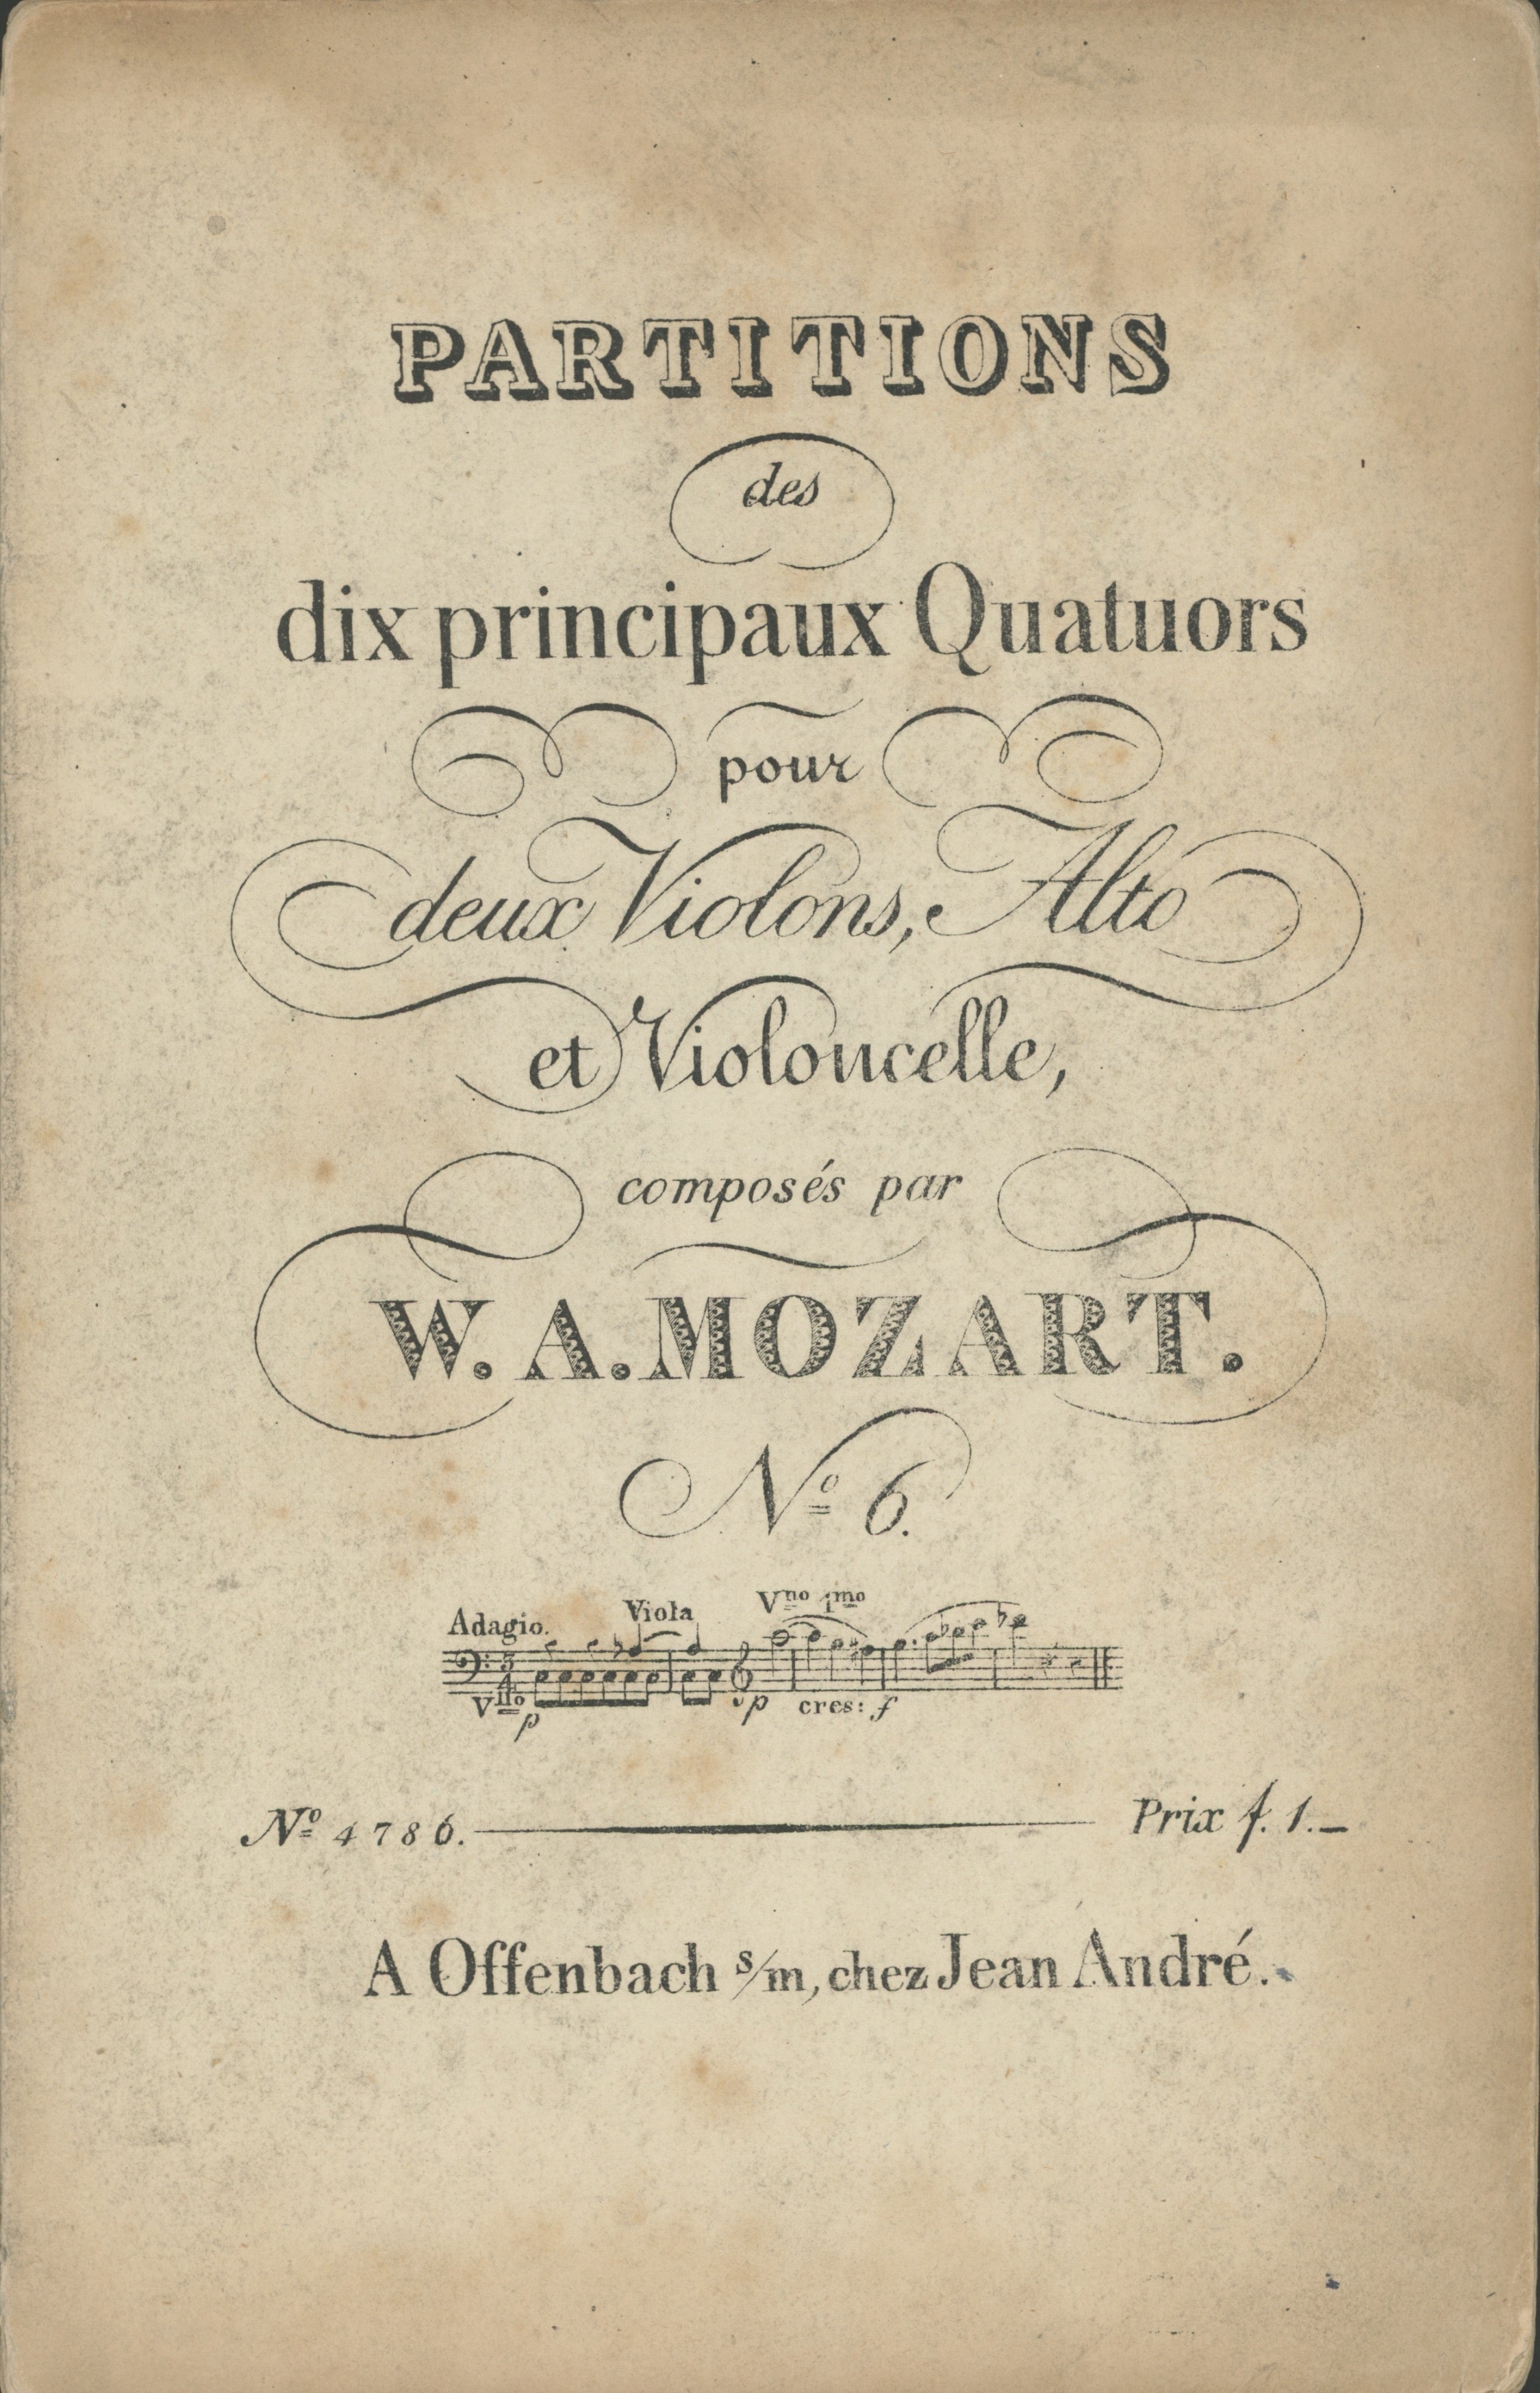 PARTITIONS
des
dix principaux Quatuors
pour
deux Violons, Alto
et Violoncelle,
composés par
W. A. MOZART.
Nº 6.
Adagio. Viola Vno 1mo
Vllo p p cres: f
Nº 4786. Prix f. 1.—
A Offenbach s/m, chez Jean André.